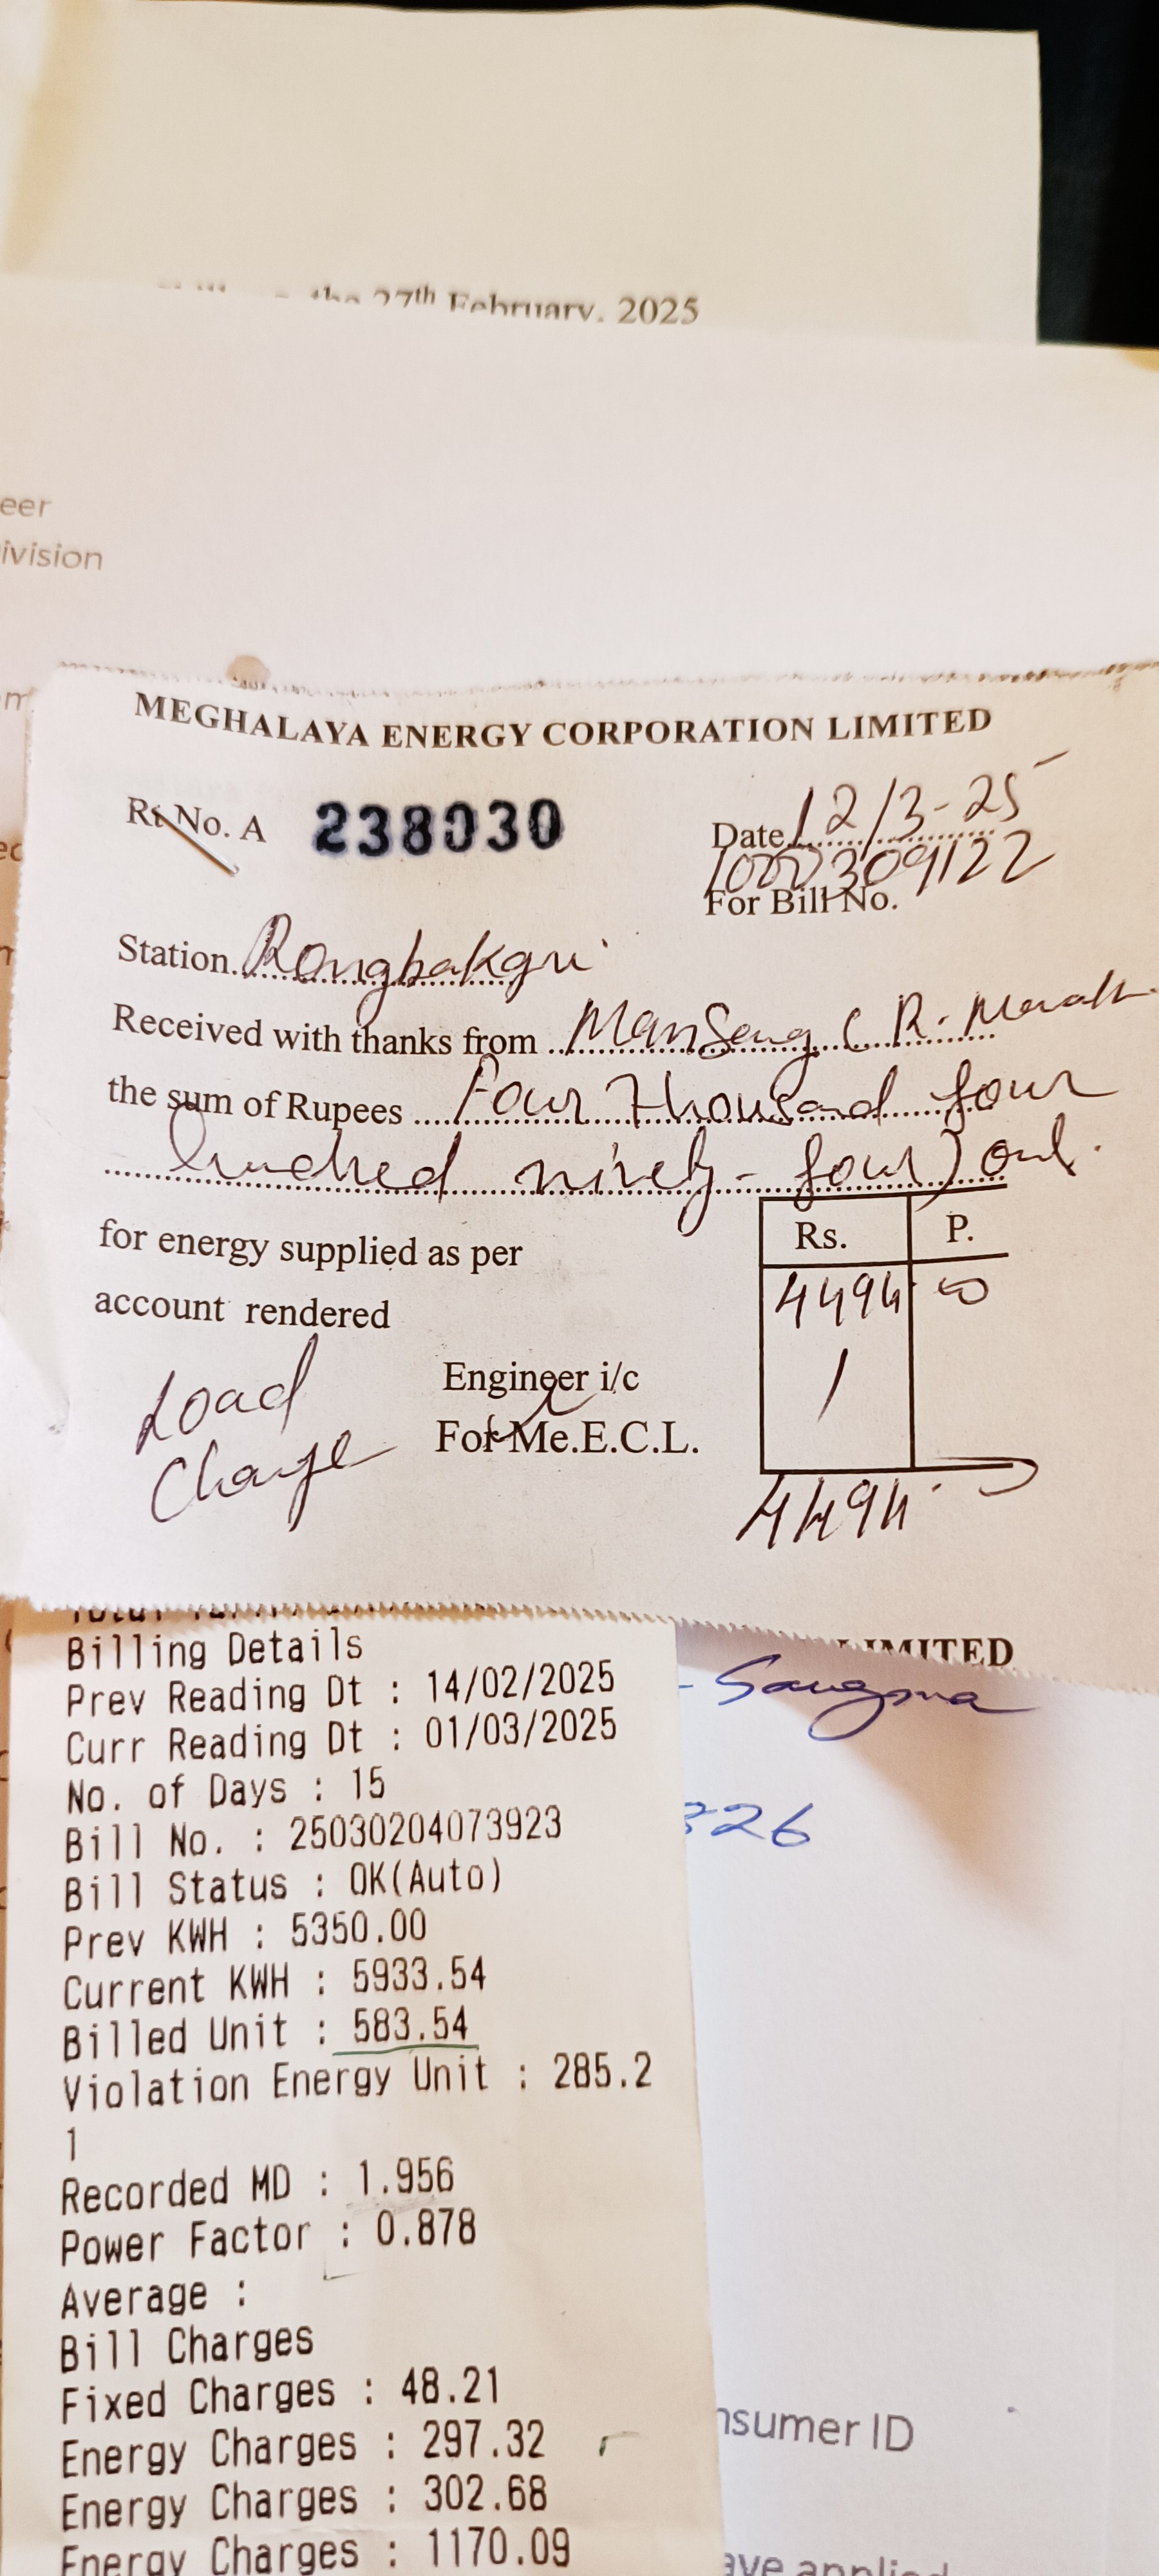 the 27th February, 2025
eer
ivision
MEGHALAYA ENERGY CORPORATION LIMITED
Rt No. A 238030
Date 12/3-25
1000309122
For Bill No.
Station Rongbakgri
Received with thanks from Manseng C R. Marak
the sum of Rupees Four Thousand four
hundred ninety-four) only.
Rs. P.
for energy supplied as per
4494
account rendered
Load
Charge
Engineer i/c
For Me.E.C.L.
4494
LIMITED
Billing Details
Sangma
Prev Reading Dt : 14/02/2025
Curr Reading Dt : 01/03/2025
No. of Days : 15
326
Bill No. : 25030204073923
Bill Status : OK(Auto)
Prev KWH : 5350.00
Current KWH : 5933.54
Billed Unit : 583.54
Violation Energy Unit : 285.2
1
Recorded MD : 1.956
Power Factor : 0.878
Average :
Bill Charges
Fixed Charges : 48.21
nsumer ID
Energy Charges : 297.32
Energy Charges : 302.68
Energy Charges : 1170.09
ave applied